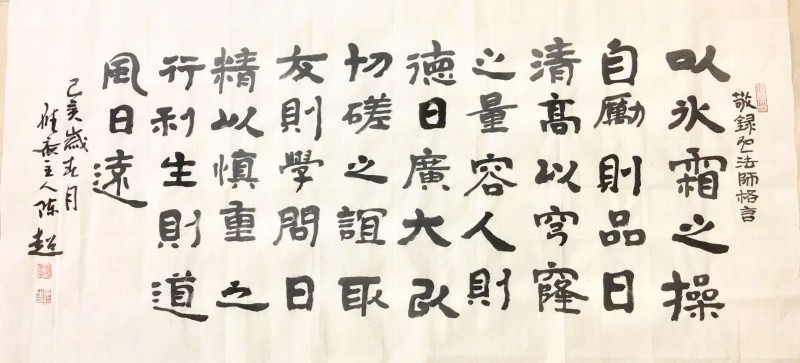 敬録弘法師格言
以氷霜之操
自勵則品日
清髙以穹窿
之量容人則
德日廣大以
切磋之誼取
友則學問日
精以慎重之
行利生則道
風日遠
己亥歲春月
主人陈超